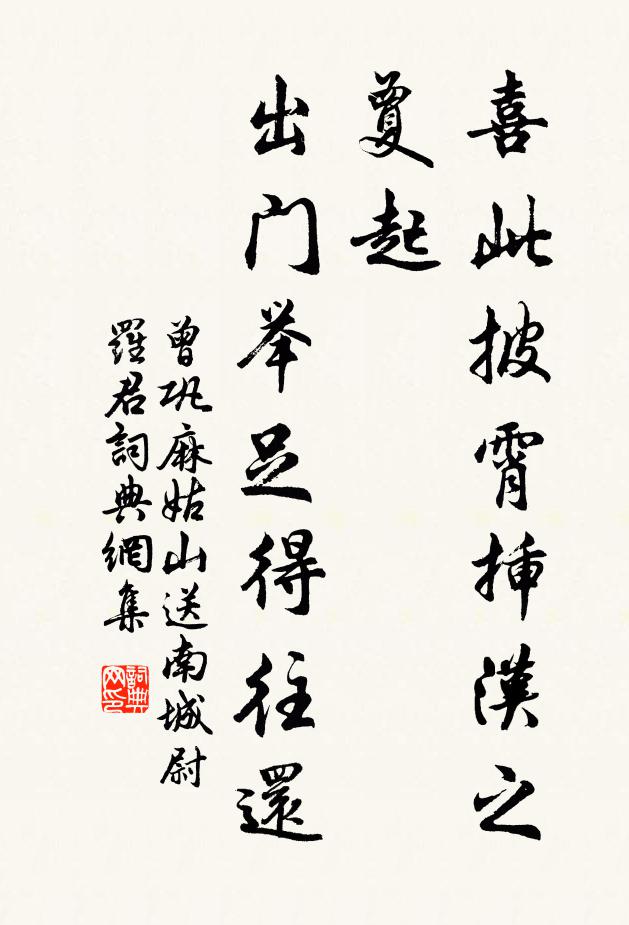 喜此披霄挿漢之
夐起
出门举足得往還
曾巩麻姑山送南城尉
羅君詞典網集
詞典
网印